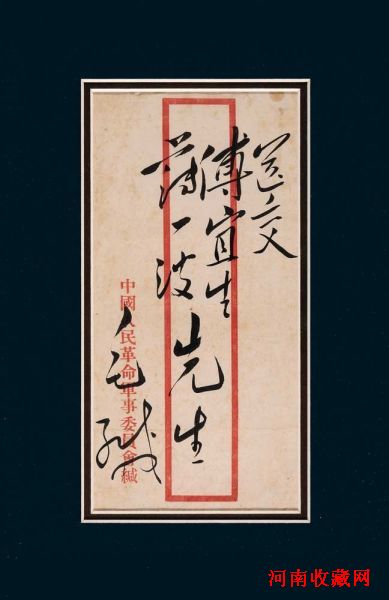 送交
傅宜生
薄一波
先生
毛缄
中國人民革命軍事委員會緘
河南收藏网